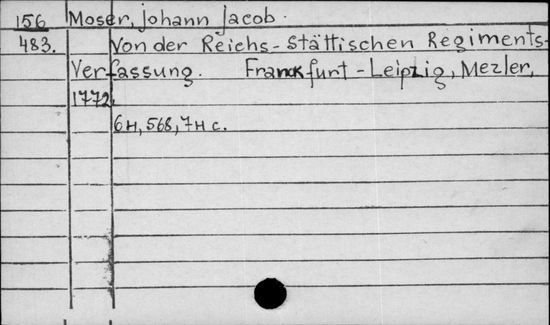 156 Moser, Johann Jacob.
483. Von der Reichs-Stättischen Regiments-
Verfassung. Franckfurt-Leipzig, Mezler,
1772.
6H, 568, 7H c.